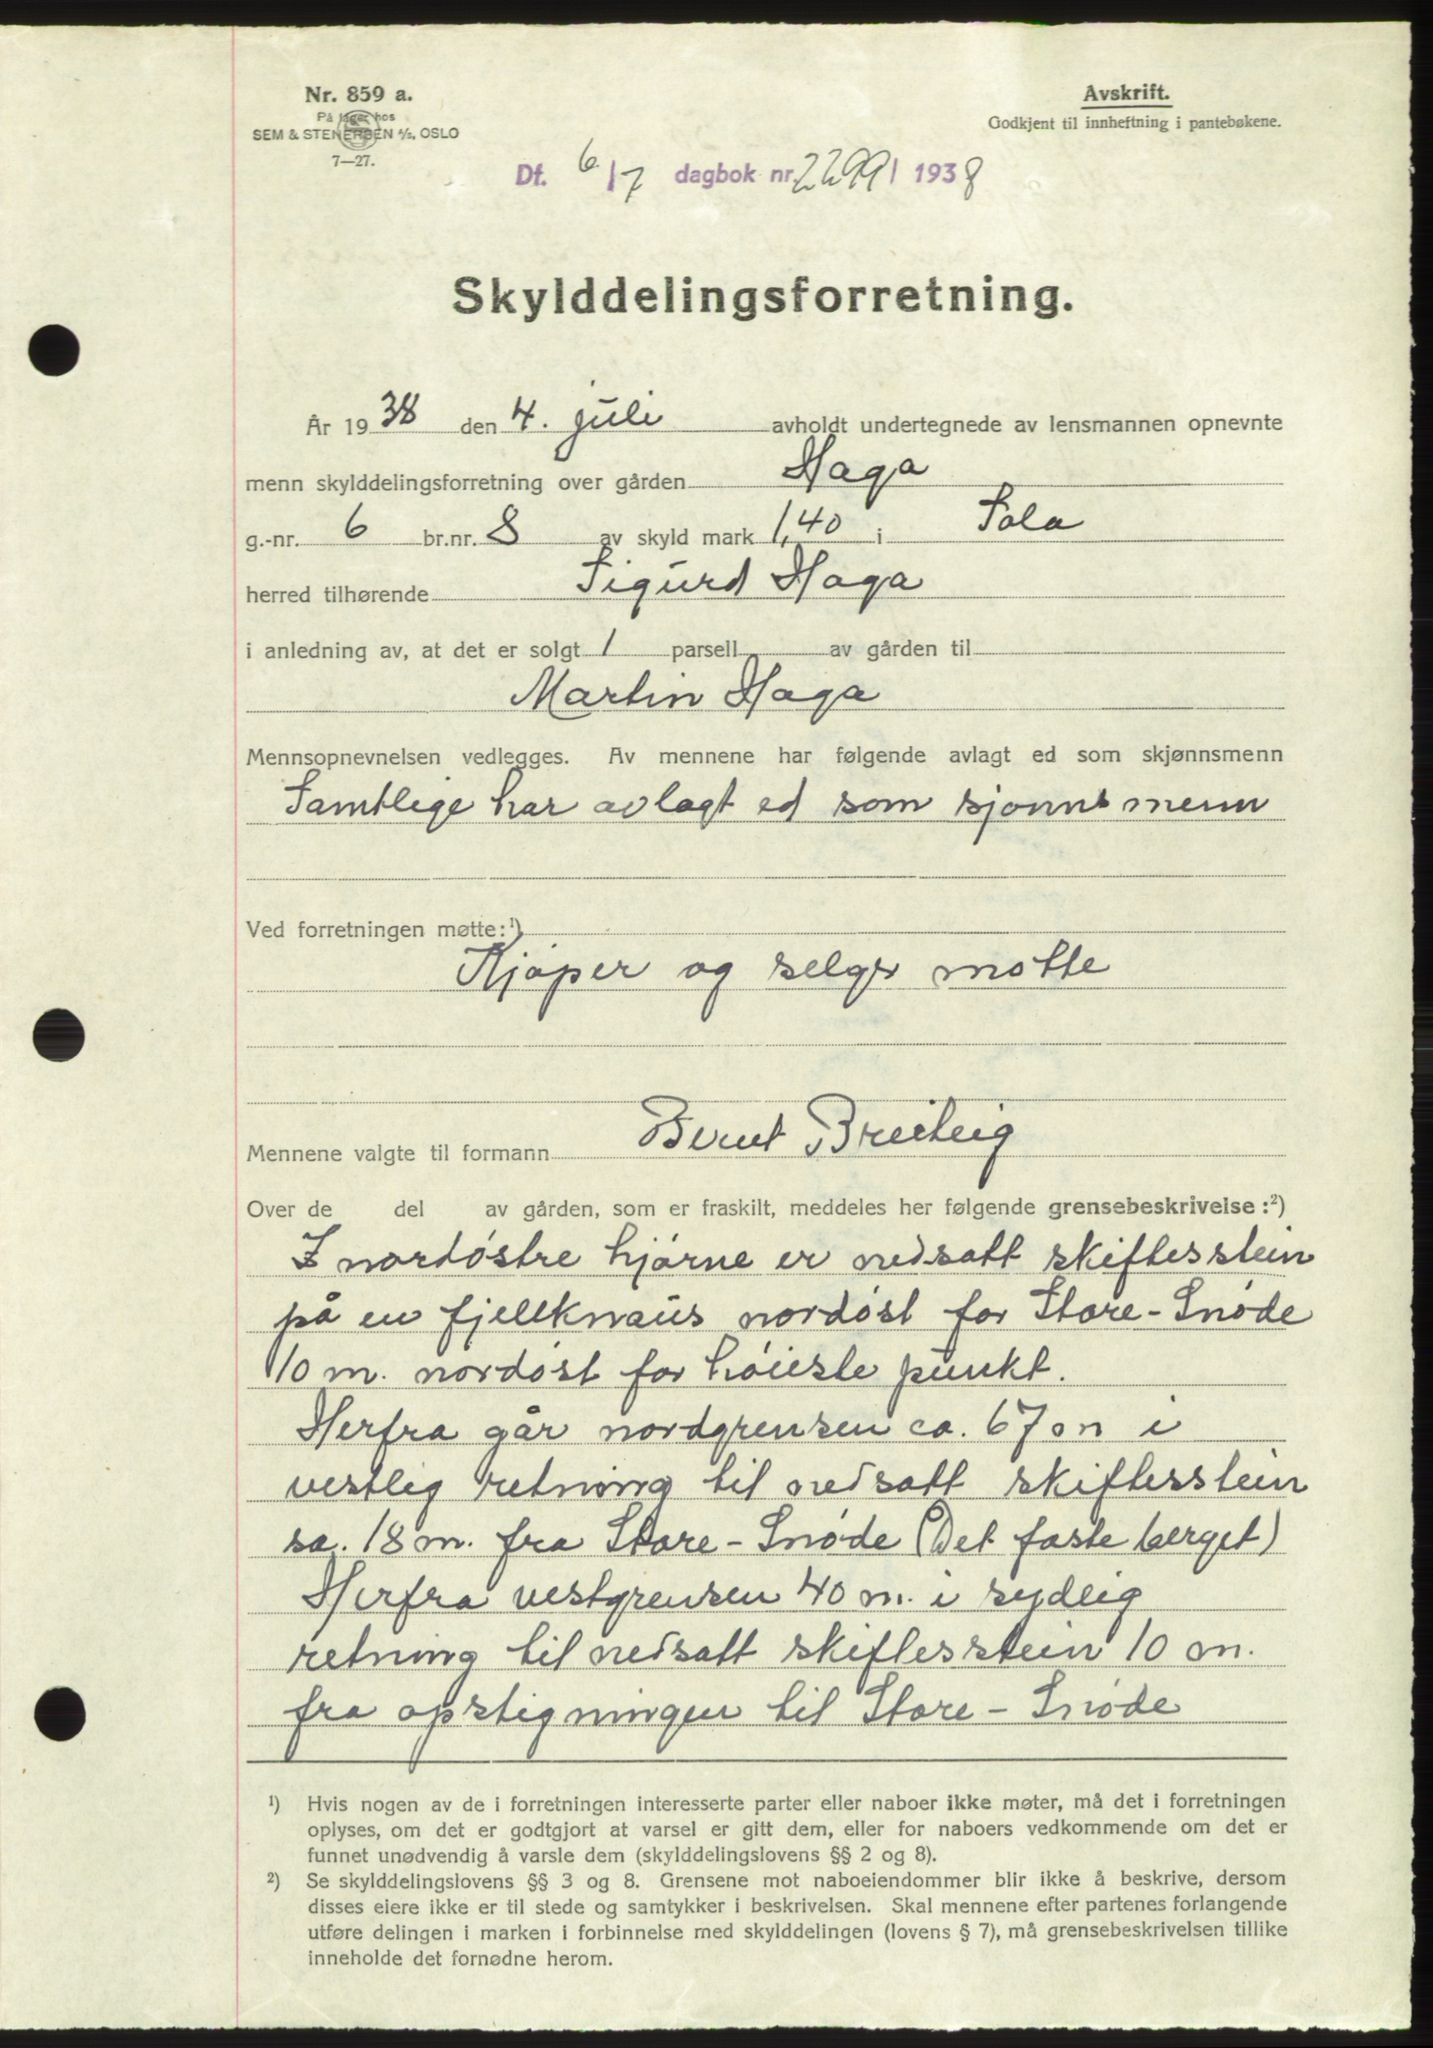 Nr. 859 a.
På lager hos
SEM & STENERSEN A/S, OSLO
7—27.
Avskrift.
Godkjent til innheftning i pantebøkene.
Df. 6/7 dagbok nr. 2299 / 1938
Skylddelingsforretning.
År 1938 den 4. juli avholdt undertegnede av lensmannen opnevnte
menn skylddelingsforretning over gården Haga
g.-nr. 6 br.nr. 8 av skyld mark 1,40 i Sola
herred tilhørende Sigurd Haga
i anledning av, at det er solgt 1 parsell av gården til
Martin Haga
Mennsopnevnelsen vedlegges. Av mennene har følgende avlagt ed som skjønnsmenn
Samtlige har avlagt ed som sjønnsmenn
Ved forretningen møtte:¹)
Kjøper og selger møtte
Mennene valgte til formann Bernt Breiteig
Over de del av gården, som er fraskilt, meddeles her følgende grensebeskrivelse:²)
I nordøstre hjørne er nedsatt skiftesstein
på en fjellknaus nordøst for Store-Snøde
10 m. nordøst for høieste punkt.
Herfra går nordgrensen ca. 67 m i
vestlig retning til nedsatt skiftesstein
sa. 18 m. fra Store-Snøde (Det faste berget)
Herfra vestgrensen 40 m. i sydlig
retning til nedsatt skiftesstein 10 m.
fra opstigningen til Store-Snøde
¹) Hvis nogen av de i forretningen interesserte parter eller naboer ikke møter, må det i forretningen
oplyses, om det er godtgjort at varsel er gitt dem, eller for naboers vedkommende om det er
funnet unødvendig å varsle dem (skylddelingslovens §§ 2 og 8).
²) Se skylddelingslovens §§ 3 og 8. Grensene mot naboeiendommer blir ikke å beskrive, dersom
disses eiere ikke er til stede og samtykker i beskrivelsen. Skal mennene efter partenes forlangende
utføre delingen i marken i forbinnelse med skylddelingen (lovens § 7), må grensebeskrivelsen tillike
inneholde det fornødne herom.